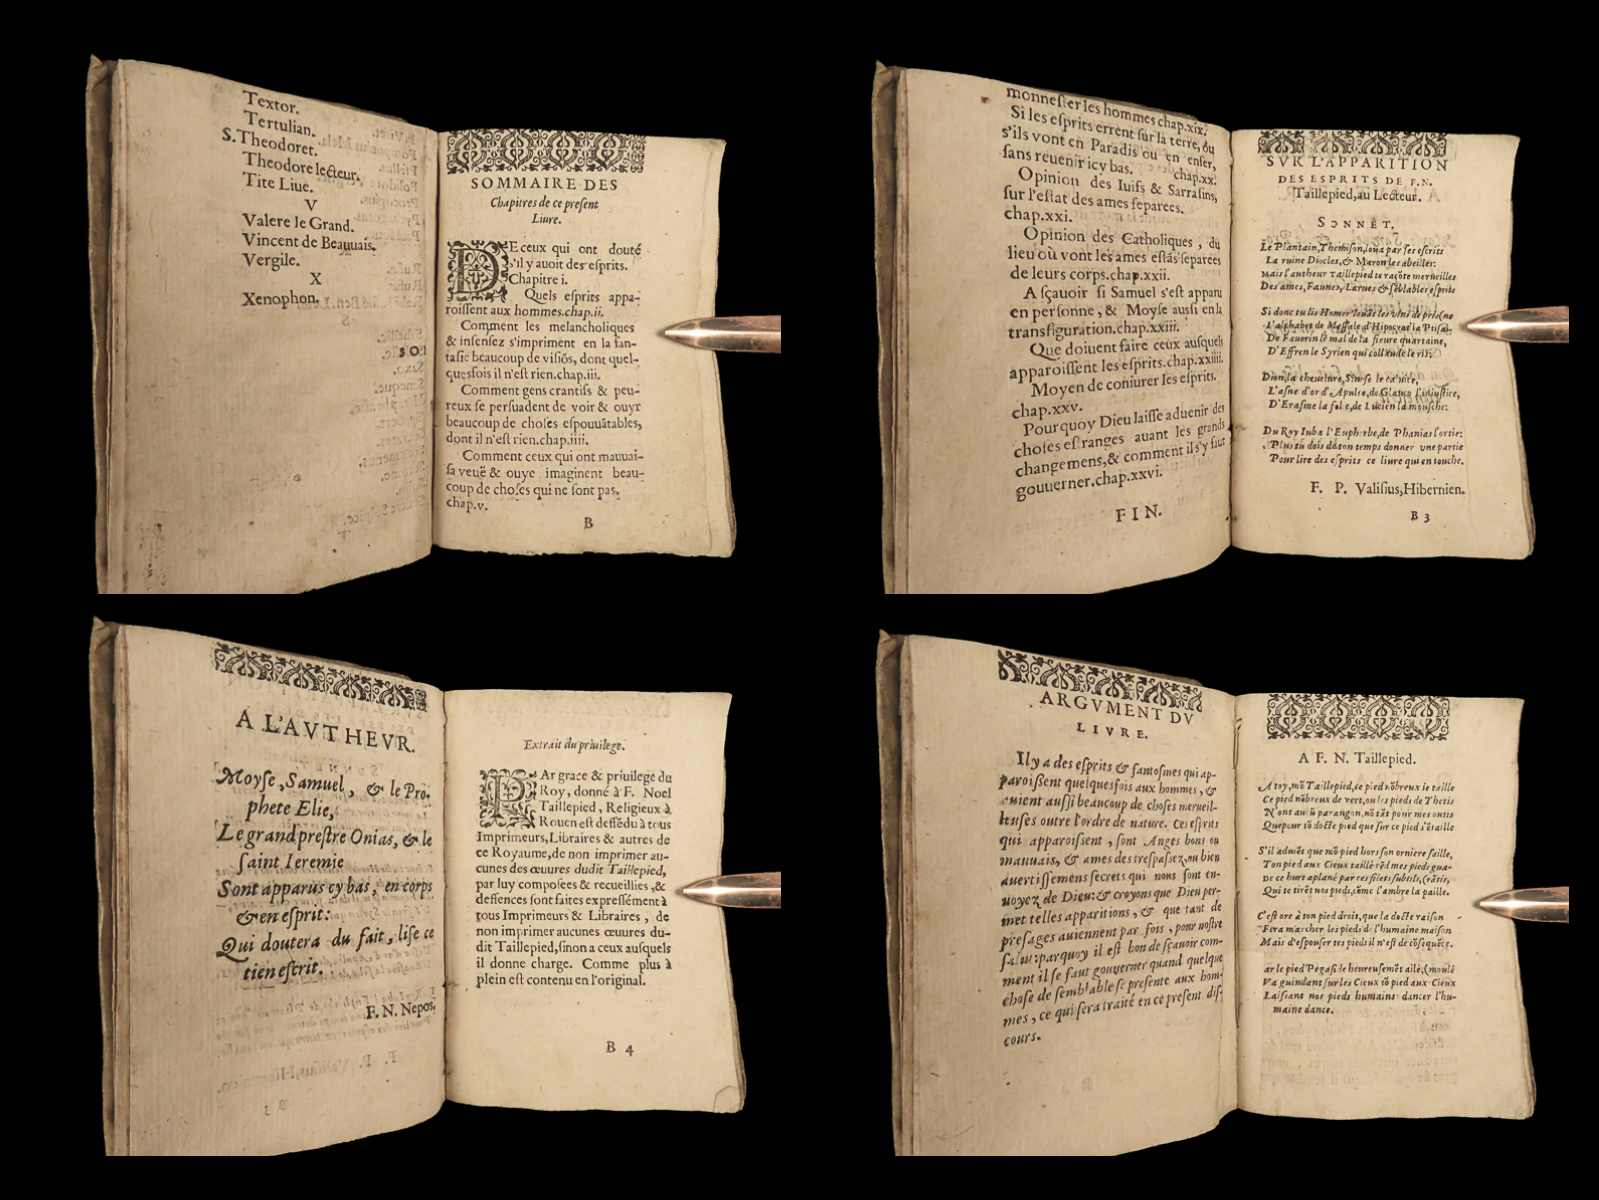 Textor.
Tertulian.
S. Theodoret.
Theodore lecteur.
Tite Liue.
V
Valere le Grand.
Vincent de Beauuais.
Vergile.
X
Xenophon.
SOMMAIRE DES
Chapitres de ce preſent
Liure.
DE ceux qui ont douté
s'il y auoit des eſprits.
Chapitre i.
Quels eſprits appa-
roiſſent aux hommes.chap.ii.
Comment les melancholiques
& inſenſez s'impriment en la fan-
taſie beaucoup de viſiõs, dont quel-
queſfois il n'eſt rien.chap.iii.
Comment gens craintifs & peu-
reux ſe perſuadent de voir & ouyr
beaucoup de choſes eſpouuãtables,
dont il n'eſt rien.chap.iiii.
Comment ceux qui ont mauuai-
ſa veuë & ouye imaginent beau-
coup de choſes qui ne ſont pas,
chap.v.
B
monneſter les hommes chap.xix.
Si les eſprits errent ſur la terre, ou
s'ils vont en Paradis ou en enfer,
ſans reuenir icy bas. chap.xx.
Opinion des Iuifs & Sarraſins,
ſur l'eſtat des ames ſeparees.
chap.xxi.
Opinion des Catholiques, du
lieu où vont les ames eſtãs ſeparees
de leurs corps.chap.xxii.
A ſçauoir ſi Samuel s'eſt apparu
en perſonne, & Moyſe auſsi en la
transfiguration.chap.xxiii.
Que doiuent faire ceux auſquels
apparoiſſent les eſprits.chap.xxiiii.
Moyen de coniurer les eſprits.
chap.xxv.
Pourquoy Dieu laiſſe aduenir des
choſes eſtranges auant les grands
changemens, & comment il s'y faut
gouuerner.chap.xxvi.
FIN.
SVR L'APPARITION
DES ESPRITS DE F.N.
Taillepied, au Lecteur.
SONNET.
Le Plantain, Themiſon, loüa par ſes eſcrits
La ruine Diocles, & Maron les abeilles:
Mais l'autheur Taillepied te raçõte merueilles
Des ames, Faunes, Larues & ſẽblables eſprits
Si donc tu lis Homer loüãt les vins de
L'alphabet de Meſſale, d'Hipocras la Ptiſan
De Fauorin le mal de la fieure quartaine,
D'Effren le Syrien qui collaude le ris:
Dion, la cheuelure, Sineſe le caluice,
L'aſne d'or d'Apulee, de Glauco l'iniuſtice,
D'Eraſme la folie, de Lucien la mouſche:
Du Roy Iuba l'Euphorbe, de Phanias l'ortie:
Plus tu dois de ton temps donner vne partie
Pour lire des eſprits ce liure qui en touche.
F. P. Valiſius, Hibernien.
B 3
A L'AVTHEVR.
Moyſe, Samuel, & le Pro-
phete Elie,
Le grand preſtre Onias, & le
ſaint Ieremie
Sont apparus cy bas, en corps
& en eſprit:
Qui doutera du fait, liſe ce
tien eſcrit.
F. N. Nepos.
Extrait du priuilege.
PAr grace & priuilege du
Roy, donné à F. Noel
Taillepied, Religieux à
Rouen eſt deffẽdu à tous
Imprimeurs, Libraires & autres de
ce Royaume, de non imprimer au-
cunes des œuures dudit Taillepied,
par luy compoſées & recueillies, &
deffences ſont faites expreſſément à
tous Imprimeurs & Libraires, de
non imprimer aucunes œuures du-
dit Taillepied, ſinon a ceux auſquels
il donne charge. Comme plus à
plein eſt contenu en l'original.
B 4
ARGVMENT DV
LIVRE.
Il y a des eſprits & fantoſmes qui ap-
paroiſſent quelquesfois aux hommes, &
auient auſſi beaucoup de choſes merueil-
leuſes outre l'ordre de nature. Ces eſprits
qui apparoiſſent, ſont Anges bons ou
mauuais, & ames des treſpaſſez, ou bien
auertiſſemens ſecrets qui nous ſont en-
uoyez de Dieu: & croyons que Dieu per-
met telles apparitions, & que tant de
preſages auiennent par fois, pour noſtre
ſalut: parquoy il eſt bon de ſçauoir com-
ment il ſe faut gouuerner quand quelque
choſe de ſemblable ſe preſente aux hom-
mes, ce qui ſera traité en ce preſent diſ-
cours.
A F. N. Taillepied.
A toy, mõ Taillepied, de pied nõbreux ie taille
Ce pied nõbreux de vers, ou les pieds de Thetis
N'ont au parangon, nõ tãt pour mes outis
Que pour tõ docte pied que ſur ce pied s'étaille
S'il aduiẽt que mõ pied hors ſon orniere ſaille,
Ton pied aux Cieux taillé rẽd mes pieds
De ce hurt aplané par ces filets ſubtils,
Qui te tirẽt nos pieds, cõme l'ambre la paille.
C'eſt ore à ton pied droit, que la docte raiſon
Fera marcher les pieds de l'humaine maiſon
Mais d'eſpouſer tes pieds il n'eſt de cõſequẽce.
ar le pied Pegaſide heureuſemẽt ailé, (moulé
Va guindant ſur les Cieux tõ pied aux Cieux
Laiſſant nos pieds humains dancer l'hu-
maine dance.